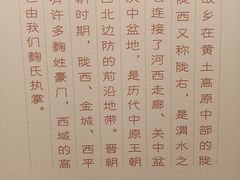 故乡在黄土高原中部的陇
陇西又称陇右，是渭水之
它连接了河西走廊、关中盆
汉中盆地，是历代中原王朝
北边防的前沿地带。晋朝
朝时期，陇西、金城、西平
有许多麴姓豪门，西域的高
由我们麴氏执掌。